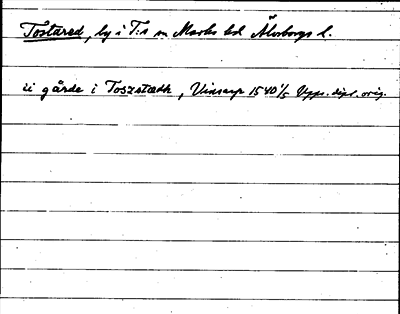 Tostared, by i T:s sn Marks hd Älvsborgs l.
ii gårde i Toszstædh, Vinsarp 1540 1/5 Upps. dipl. orig.